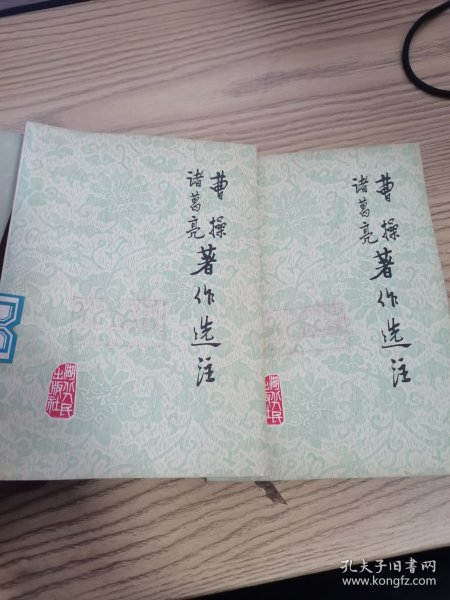 曹操
诸葛亮
著作选注
湖北人民
出版社
曹操
诸葛亮
著作选注
湖北人民
出版社
孔夫子旧书网
www.kongfz.com